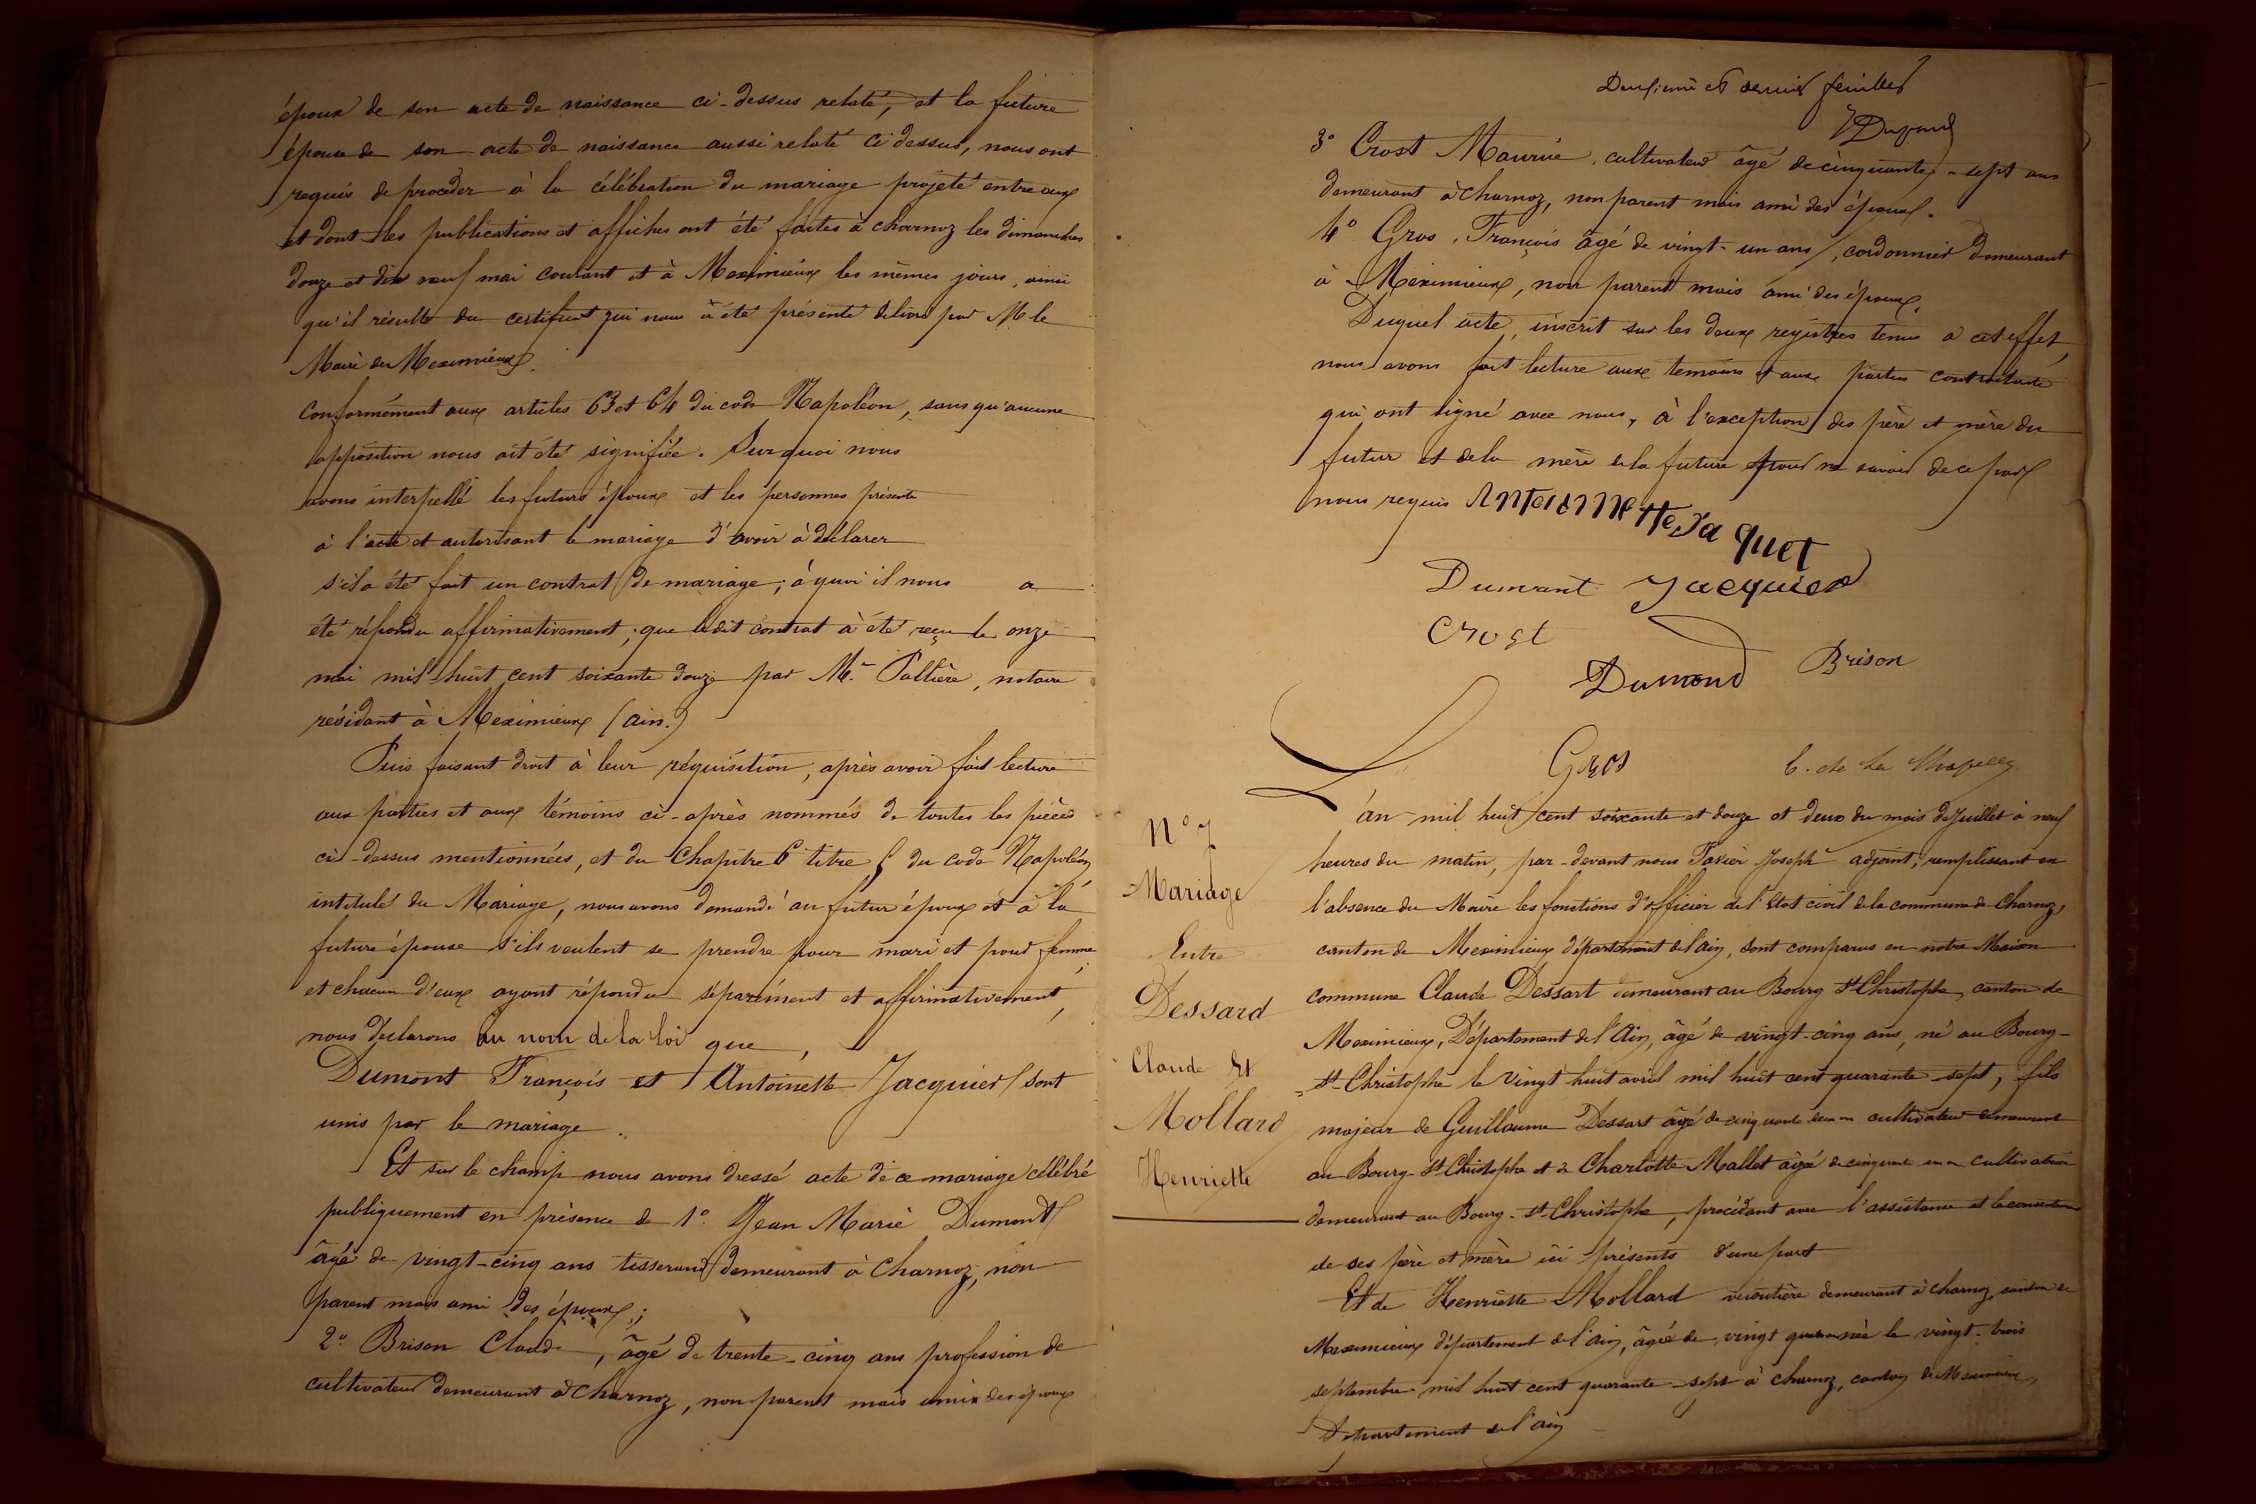 époux de son acte de naissance ci-dessus relaté, et la future
épouse de son acte de naissance aussi relaté ci dessus, nous ont
requis de procéder à la célébration du mariage projeté entre eux
et dont les publications et affiches ont été faites à charnoz les dimanches
douze et dix neuf mai courant et à Meximieux les mêmes jours, ainsi
qu'il résulte du certificat qui nous a été présenté délivré par M le
Maire de Meximieux.
Conformément aux articles 63 et 64 du code Napoléon, sans qu'aucune
opposition nous ait été signifiée. Sur quoi nous
avons interpellé les futurs époux et les personnes présente
à l'acte et autorisant le mariage d'avoir à déclarer
s'il a été fait un contrat de mariage; à quoi il nous a
été répondu affirmativement; que ledit contrat à été reçu le onze
mai mil huit cent soixante douze par Me Pallière, notaire
résidant à Meximieux (ain.)
Puis faisant droit à leur réquisition, après avoir fait lecture
aux parties et aux témoins ci-après nommés de toutes les pièces
ci-dessus mentionnées, et du Chapitre 6 titre 5 du code Napoléon
intitulé du Mariage, nous avons demandé au futur époux et à la
future épouse s'ils veulent se prendre pour mari et pour femme
et chacun d'eux ayant répondu séparément et affirmativement,
nous déclarons au nom de la loi que,
Dumont François et Antoinette Jacquier sont
unis par le mariage.
Et sur le champ nous avons dressé acte de ce mariage célébré
publiquement en présence de 1° Jean Marie Dumont
âgé de vingt-cinq ans tisserand demeurant à Charnoz, non
parent mais ami des époux;
2° Brison Claude, âgé de trente-cinq ans profession de
cultivateur demeurant à Charnoz, non parent mais ami des époux
Deuxième et dernier feuillet
3° Crost Maurice, cultivateur âgé de cinquante-sept ans
demeurant à Charnoz, non parent mais ami des époux.
4° Gros, François âgé de vingt-un ans, cordonnier demeurant
à Meximieux, non parent mais ami des époux.
Duquel acte, inscrit sur les deux registres tenus a cet effet,
nous avons fait lecture aux temoins et aux parties contractante
qui ont signé avec nous, à l'exception des père et mère du
futur et de la mère de la future pour ne savoir de ce par
nous requis Antoinette Jaquet
Dumont Jacquier
Crost
Dumond Brison
Gros
N° 7
Mariage
Entre
Dessard
Claude Et
Mollard
Henriette
L'an mil huit cent soixante et douze et deux du mois de Juillet à neuf
heures du matin, par-devant nous Joseph adjoint, remplissant en
l'absence du Maire les fonctions d'officier de l'Etat civil de la commune de Charnoz,
canton de Meximieux département de l'ain, sont comparus en notre Maison
commune Claude Dessart demeurant au Bourg St Christophe, canton de
Meximieux, Département de l'Ain, âgé de vingt-cinq ans, né au Bourg-
St-Christophe le vingt huit avril mil huit cent quarante-sept, fils
majeur de Guillaume Dessart âgé de cinquante cultivateur demeurant
au Bourg-St Christophe et de Charlotte Mallet âgé de cinquante cultivatrice
demeurant au Bourg-St-Christophe, procédant avec l'assistance et le consentement
de ses père et mère ici présents d'une part
Et de Henriette Mollard demeurant à charnoz, canton de
Meximieux département de l'ain, âgée de vingt quatre née le vingt-trois
septembre mil huit cent quarante-sept à charnoz, canton de Meximieux,
Département de l'ain